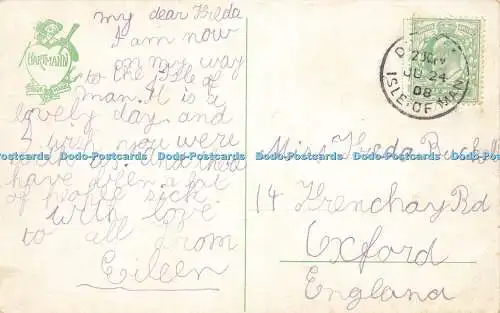 HARTMANN
my dear Freda
I am now
on my way
to the Isle of
man. It is a
lovely day and
I wish you were
have been a lot
of people sick.
With love
to all from
Eileen
JU 24
08
ISLE-OF-MAN
Miss Freda
14 Frenchay Rd
Oxford
England
Dodo-Postcards Dodo-Postcards Dodo-Postcards Dodo-Postcards Dodo-Postcards